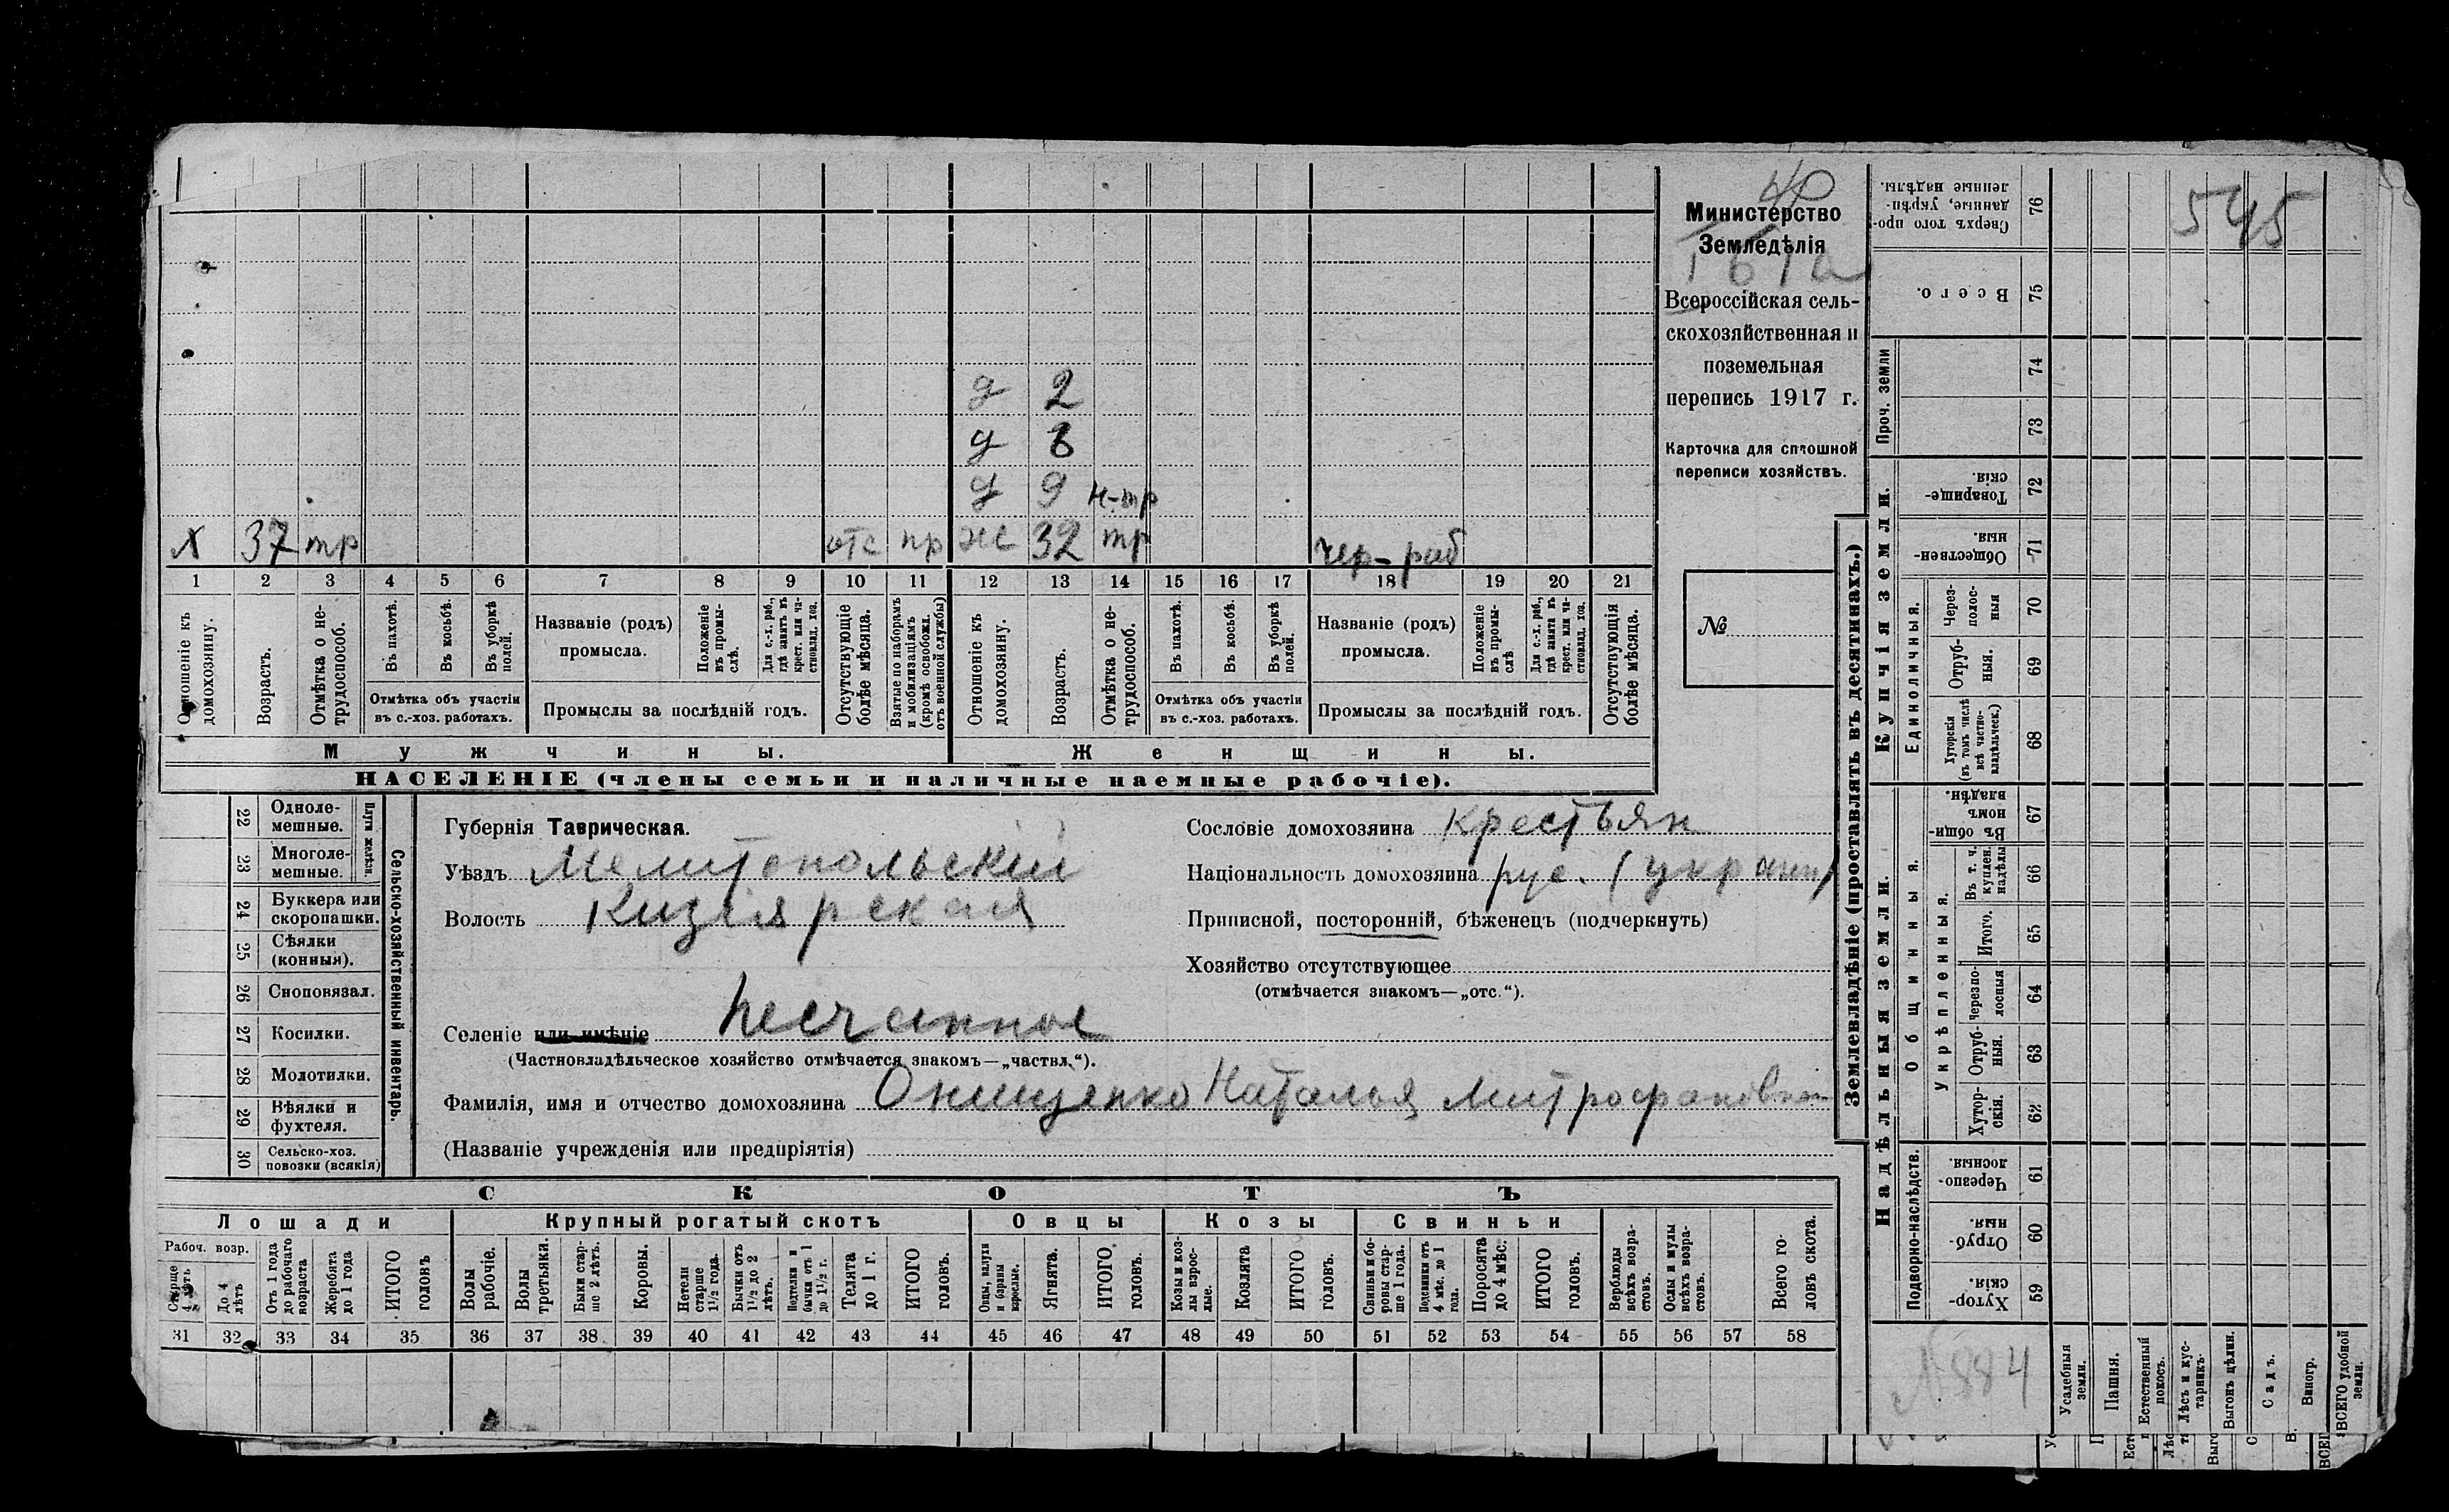 40
Министерство
Земледѣлія
Всероссійская сель-
скохозяйственная и
поземельная
перепись 1917 г.
Карточка для сплошной
переписи хозяйствъ.
№
545
д 2
д 6
д 9 н-тр
х 37 тр отс пр ж 32 тр чер-раб
1 2 3 4 5 6 7 8 9 10 11 12 13 14 15 16 17 18 19 20 21
Отношеніе къ домохозяину.
Возрастъ.
Отмѣтка о не-трудоспособ.
Въ пахотѣ.
Въ косьбѣ.
Въ уборкѣ полей.
Отмѣтка объ участіи
въ с.-хоз. работахъ.
Названіе (родъ)
промысла.
Положеніе въ промы-слѣ.
Для с.-х. раб., гдѣ занятъ въ крест. или ча-стновлад. хоз.
Промыслы за послѣдній годъ.
Отсутствующіе болѣе мѣсяца.
Взятые по наборамъ и мобилизаціямъ (кромѣ освобожд. отъ военной службы)
Отношеніе къ домохозяину.
Возрастъ.
Отмѣтка о не-трудоспособ.
Въ пахотѣ.
Въ косьбѣ.
Въ уборкѣ полей.
Отмѣтка объ участіи
въ с.-хоз. работахъ.
Названіе (родъ)
промысла.
Положеніе въ промы-слѣ
Для с.-х. раб., гдѣ занята въ крест. или ча-стновлад. хоз.
Промыслы за послѣдній годъ.
Отсутствующія болѣе мѣсяца.
Мужчины. Женщины.
НАСЕЛЕНІЕ (члены семьи и наличные наемные рабочіе).
22 Одноле-мешные.
23 Многоле-мешные.
Плуги желѣзн.
24 Буккера или скоропашки.
25 Сѣялки (конныя).
26 Сноповязал.
27 Косилки.
28 Молотилки.
29 Вѣялки и фухтеля.
30 Сельско-хоз. повозки (всякія)
Сельско-хозяйственный инвентарь.
Губернія Таврическая.
Уѣздъ Мелитопольскій
Волость Кизіярская
Селеніе или имѣніе Песчанное
(Частновладѣльческое хозяйство отмѣчается знакомъ—„частвл.“).
Фамилія, имя и отчество домохозяина Онищенко Наталья Митрофановна
(Названіе учрежденія или предпріятія)
Сословіе домохозяина крестьян
Національность домохозяина рус. (украин)
Приписной, посторонній, бѣженецъ (подчеркнуть)
Хозяйство отсутствующее
(отмѣчается знакомъ—„отс.“).
СКОТЪ
Лошади Крупный рогатый скотъ Овцы Козы Свиньи
Рабоч. возр.
Старше 4 лѣтъ
До 4 лѣтъ
Отъ 1 года до рабочаго возраста
Жеребята до 1 года
ИТОГО головъ
Волы рабочіе.
Волы третьяки.
Быки стар-ше 2 лѣтъ.
Коровы.
Нетели старше 1½ года.
Бычки отъ 1½ до 2 лѣтъ.
Подтелки и бычки отъ 1 до 1½ г.
Телята до 1 г.
ИТОГО головъ.
Овцы, валухи и бараны взрослые.
Ягнята.
ИТОГО головъ.
Козы и коз-лы взрос-лые.
Козлята
ИТОГО головъ.
Свиньи и бо-ровы стар-ше 1 года.
Подсвинки отъ 4 мѣс. до 1 года.
Поросята до 4 мѣс.
ИТОГО головъ.
Верблюды всѣхъ возра-стовъ.
Ослы и мулы всѣхъ возра-стовъ.
Всего го-ловъ скота.
31 32 33 34 35 36 37 38 39 40 41 42 43 44 45 46 47 48 49 50 51 52 53 54 55 56 57 58
Землевладѣніе (проставлять въ десятинахъ.)
Купчія земли.
Надѣльныя земли.
Сверхъ того про-данные, укрѣп-ленные надѣлы. 76
Всего. 75
Проч. земли 74 73
Товарище-скія. 72
Обществен-ныя. 71
Единоличныя.
Через-полос-ныя 70
Отруб-ныя. 69
Хуторскія (въ томъ числѣ всѣ частно-владѣльческ.) 68
Общинныя.
Въ общи-номъ владѣн. 67
Укрѣпленныя.
Въ т. ч. куплен. надѣлы 66
Итого. 65
Черезпо-лосныя 64
Отруб-ныя. 63
Хутор-скія. 62
Подворно-наслѣдств.
Черезпо-лосныя. 61
Отруб-ныя. 60
Хутор-скія. 59
№884
Усадебныя земли.
Пашня.
Естественный покосъ.
Лѣсъ и кус-тарникъ.
Выгонъ цѣлин.
Садъ.
Виногр.
ВСЕГО удобной земли.